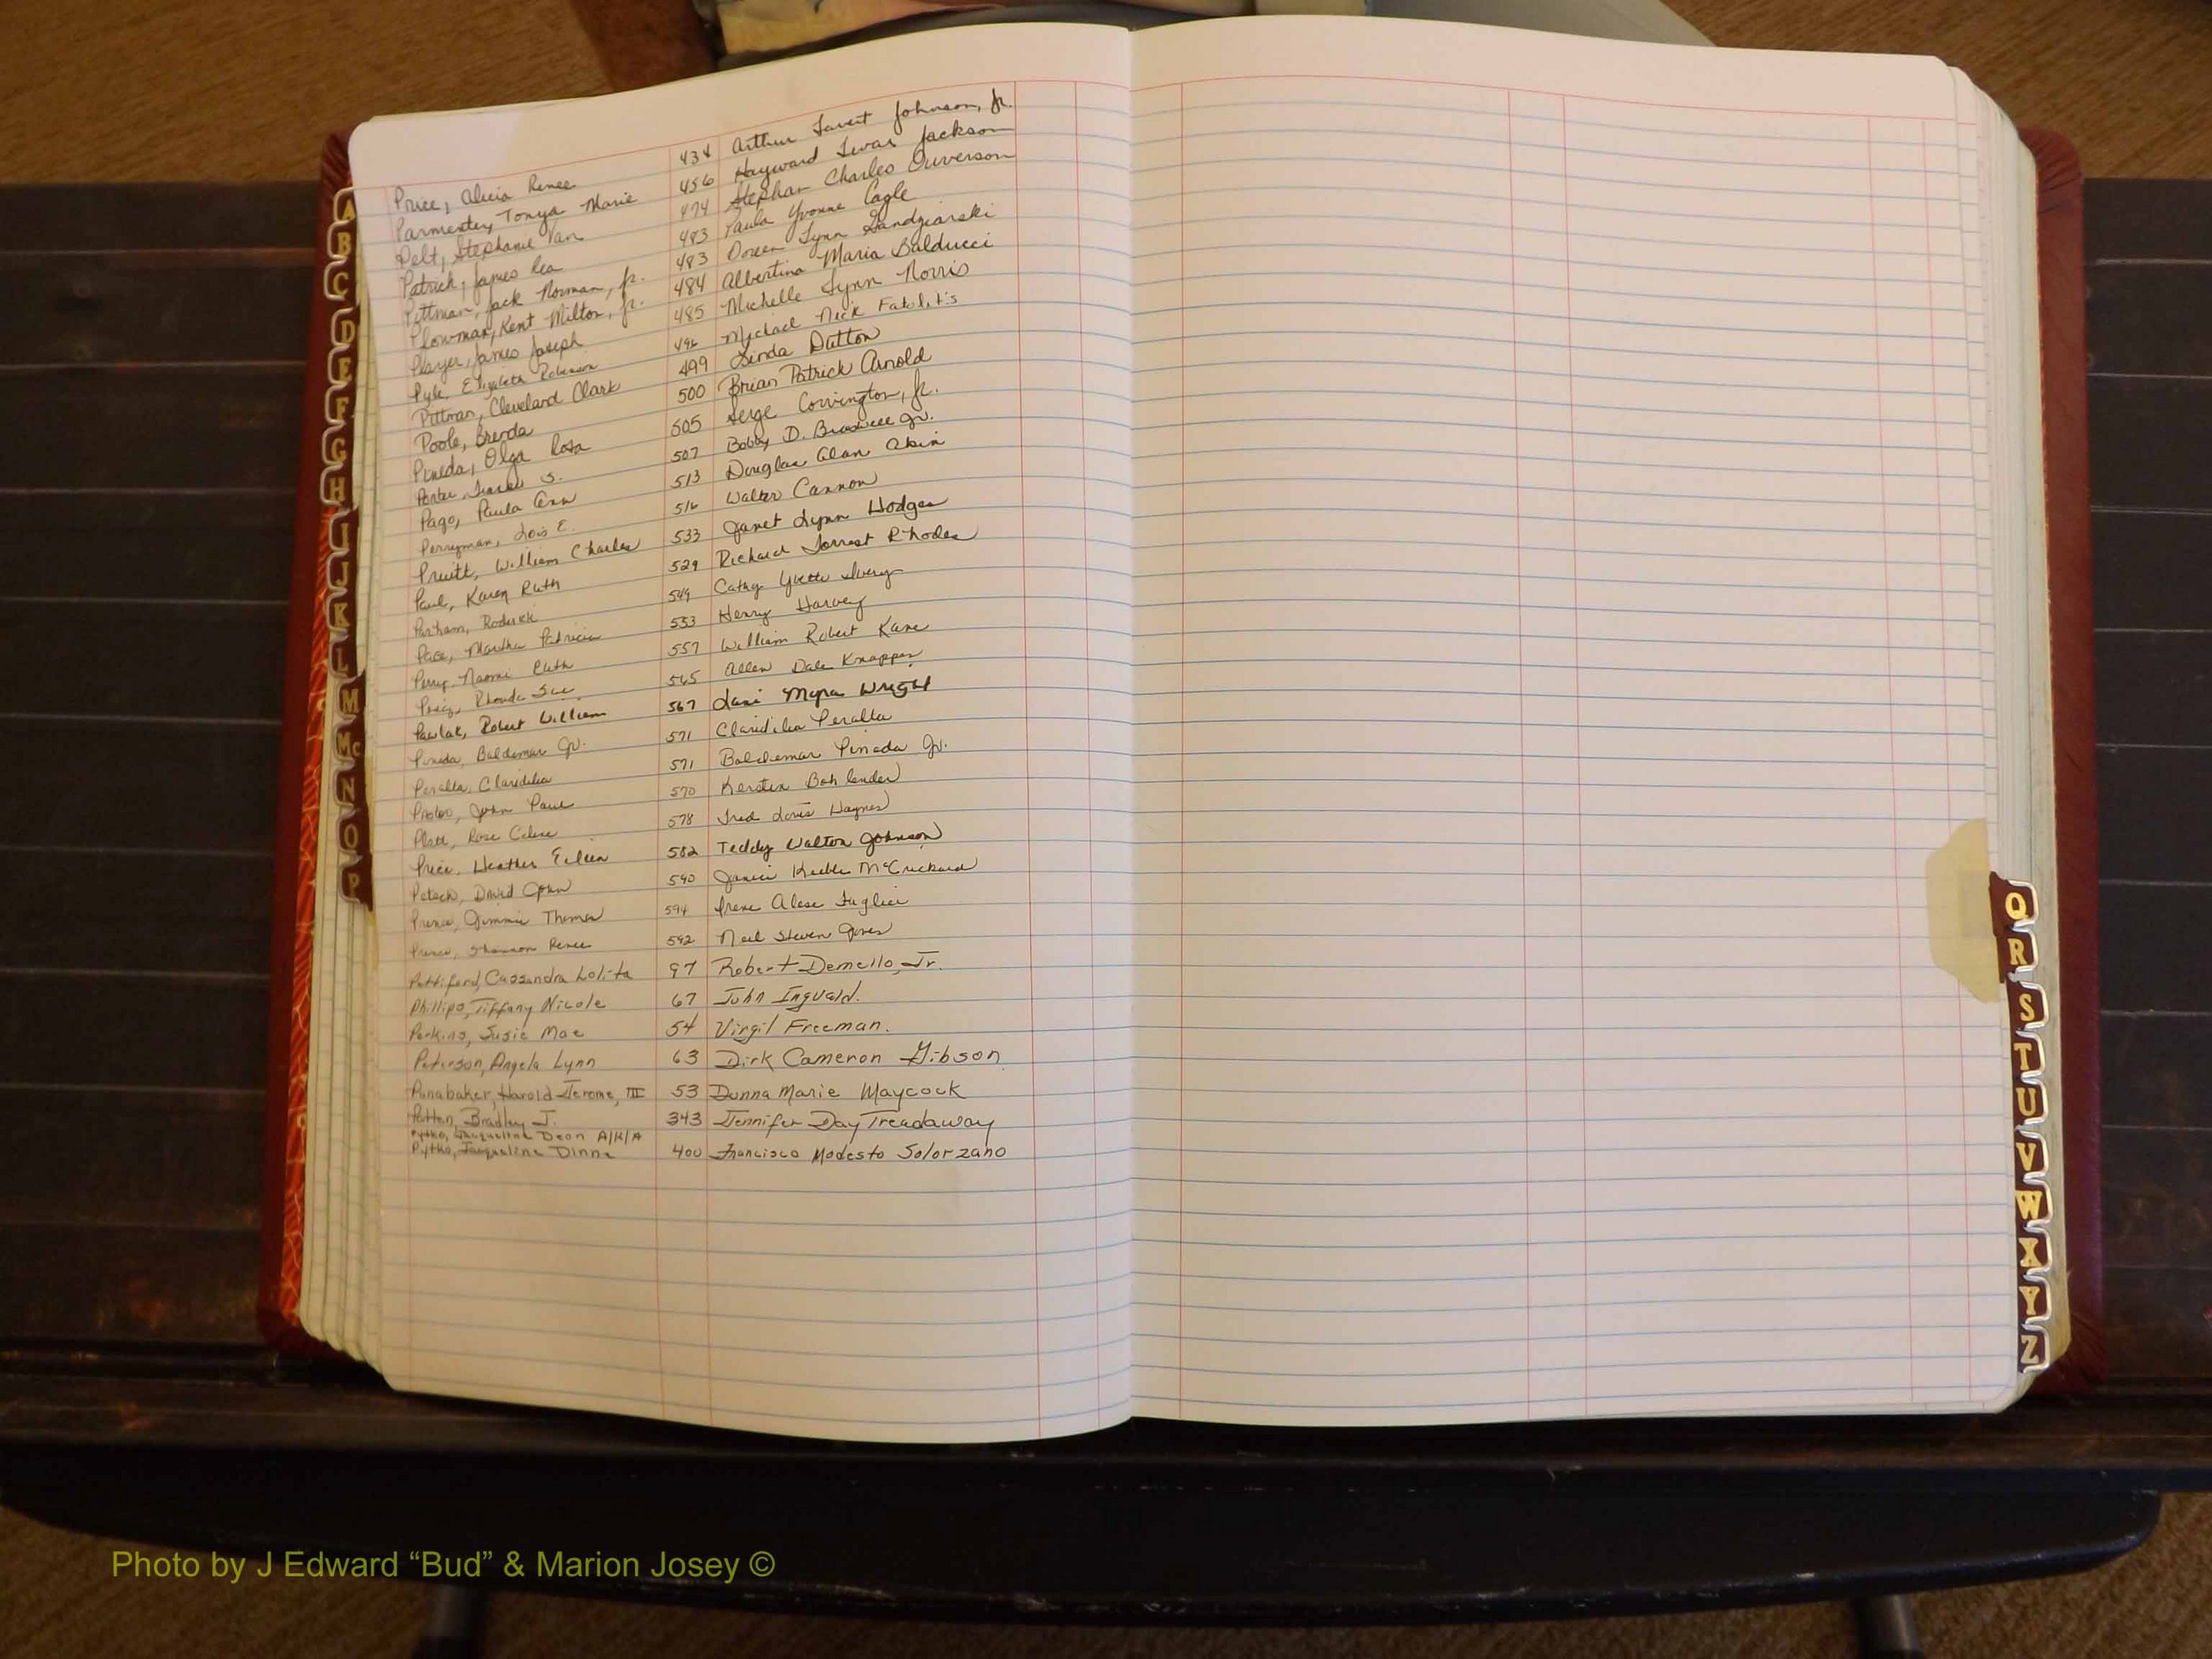 Price, Alicia Renee 434 Arthur Johnson, Jr.
Parmenter, Tonya Marie 456 Hayward Jackson
Pelt, Stephanie Van 474 Stephan Charles Ouverson
Patrick, James Rea 483 Paula Yvonne Cagle
Pittman, Jack Norman, Jr. 483 Doreen Lynn
Plowman, Kent Milton, Jr. 484 Albertina Maria Balducci
Player, James Joseph 485 Michelle Lynn Norris
Pyle, Elizabeth Robinson 496 Michael Nick Fatolitis
Pittman, Cleveland Clark 499 Linda Dutton
Poole, Brenda 500 Brian Patrick Arnold
Pineda, Olga Rosa 505 Serge Corvington, Jr.
Porter, S. 507 Bobby D. Jr.
Pago, Paula Ann 513 Douglas Alan Akin
Perryman, Lois E. 516 Walter Cannon
Pruitt, William Charles 533 Janet Lynn Hodges
Paul, Karen Ruth 529 Richard Forrest Rhodes
Parham, Roderick 549 Cathy Yvette Ivery
Pace, Martha Patricia 553 Henry Harvey
Perry, Naomi Ruth 557 William Robert Kane
Rhonda Sue 565 Allen Dale Knapper
Pawlak, Robert William 567 Myra Wright
Pineda, Baldemar Jr. 571 Claridilia Peralta
Peralta, Claridilia 571 Baldemar Pineda Jr.
John Paul 570 Kerstin Bohlender
Platt, Rose Celese 578 Fred Louis Haynes
Price, Heather Eileen 582 Teddy Walton Johnson
Petsch, David John 590 Janice Keeble McCrickard
Prince, Jimmie Thomas 594 Irene
Prince, Shannon Renee 592 Neil Steven Jones
Pettiford, Cassandra Lolita 97 Robert Demello, Jr.
Phillips, Tiffany Nicole 67 John Ingvald.
Perkins, Susie Mae 54 Virgil Freeman.
Peterson, Angela Lynn 63 Dirk Cameron Gibson
Panabaker, Harold Jerome, III 53 Donna Marie Maycock
Patton, Bradley J. 343 Jennifer Day Treadaway
Pytko, Jacqueline Dean A/K/A
Pytko, Jacqueline Dinna 400 Francisco Modesto Solorzano
A
B
C
D
E
F
G
H
I
J
K
L
M
Mc
N
O
P
Q
R
S
T
U
V
W
X
Y
Z
Photo by J Edward “Bud” & Marion Josey ©